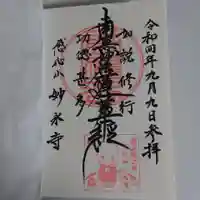 令和四年九月九日参拝
如説修行
南無妙法蓮華経
功徳甚多
妙永寺